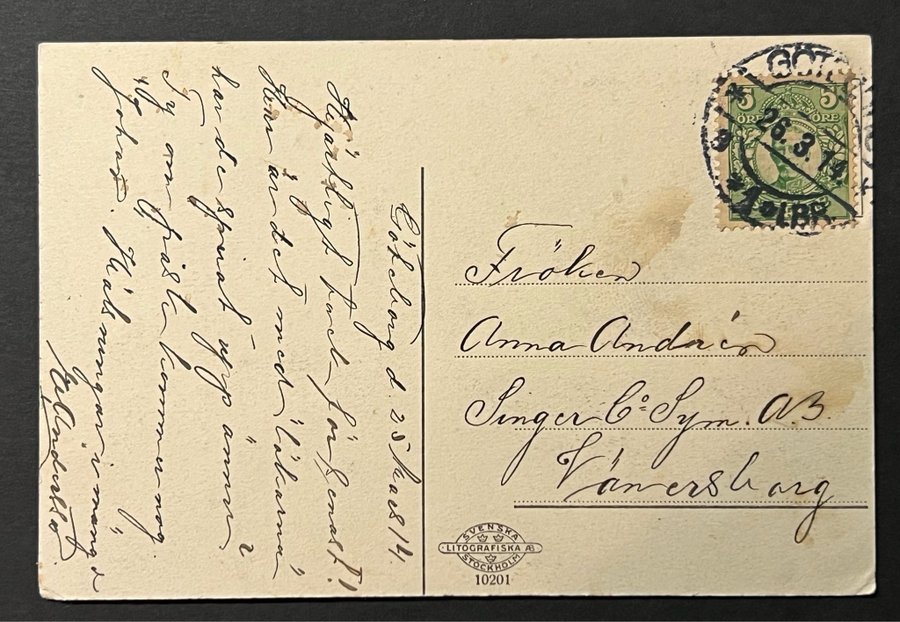 Göteborg d. 25 Mars 14.
Hjärtligt tack för senast!
Hur är det med lökarna
har de spirat upp ännu?
Ty om påsk kommer nog
Johan. Hälsningar i mängd
Andersson
GÖT
26.3.14
1 LBR
5 5
ÖRE ÖRE
Fröken
Anna Andrén
Singer Co Sym. A.B.
Vänersborg
SVENSKA
LITOGRAFISKA AB
STOCKHOLM
10201